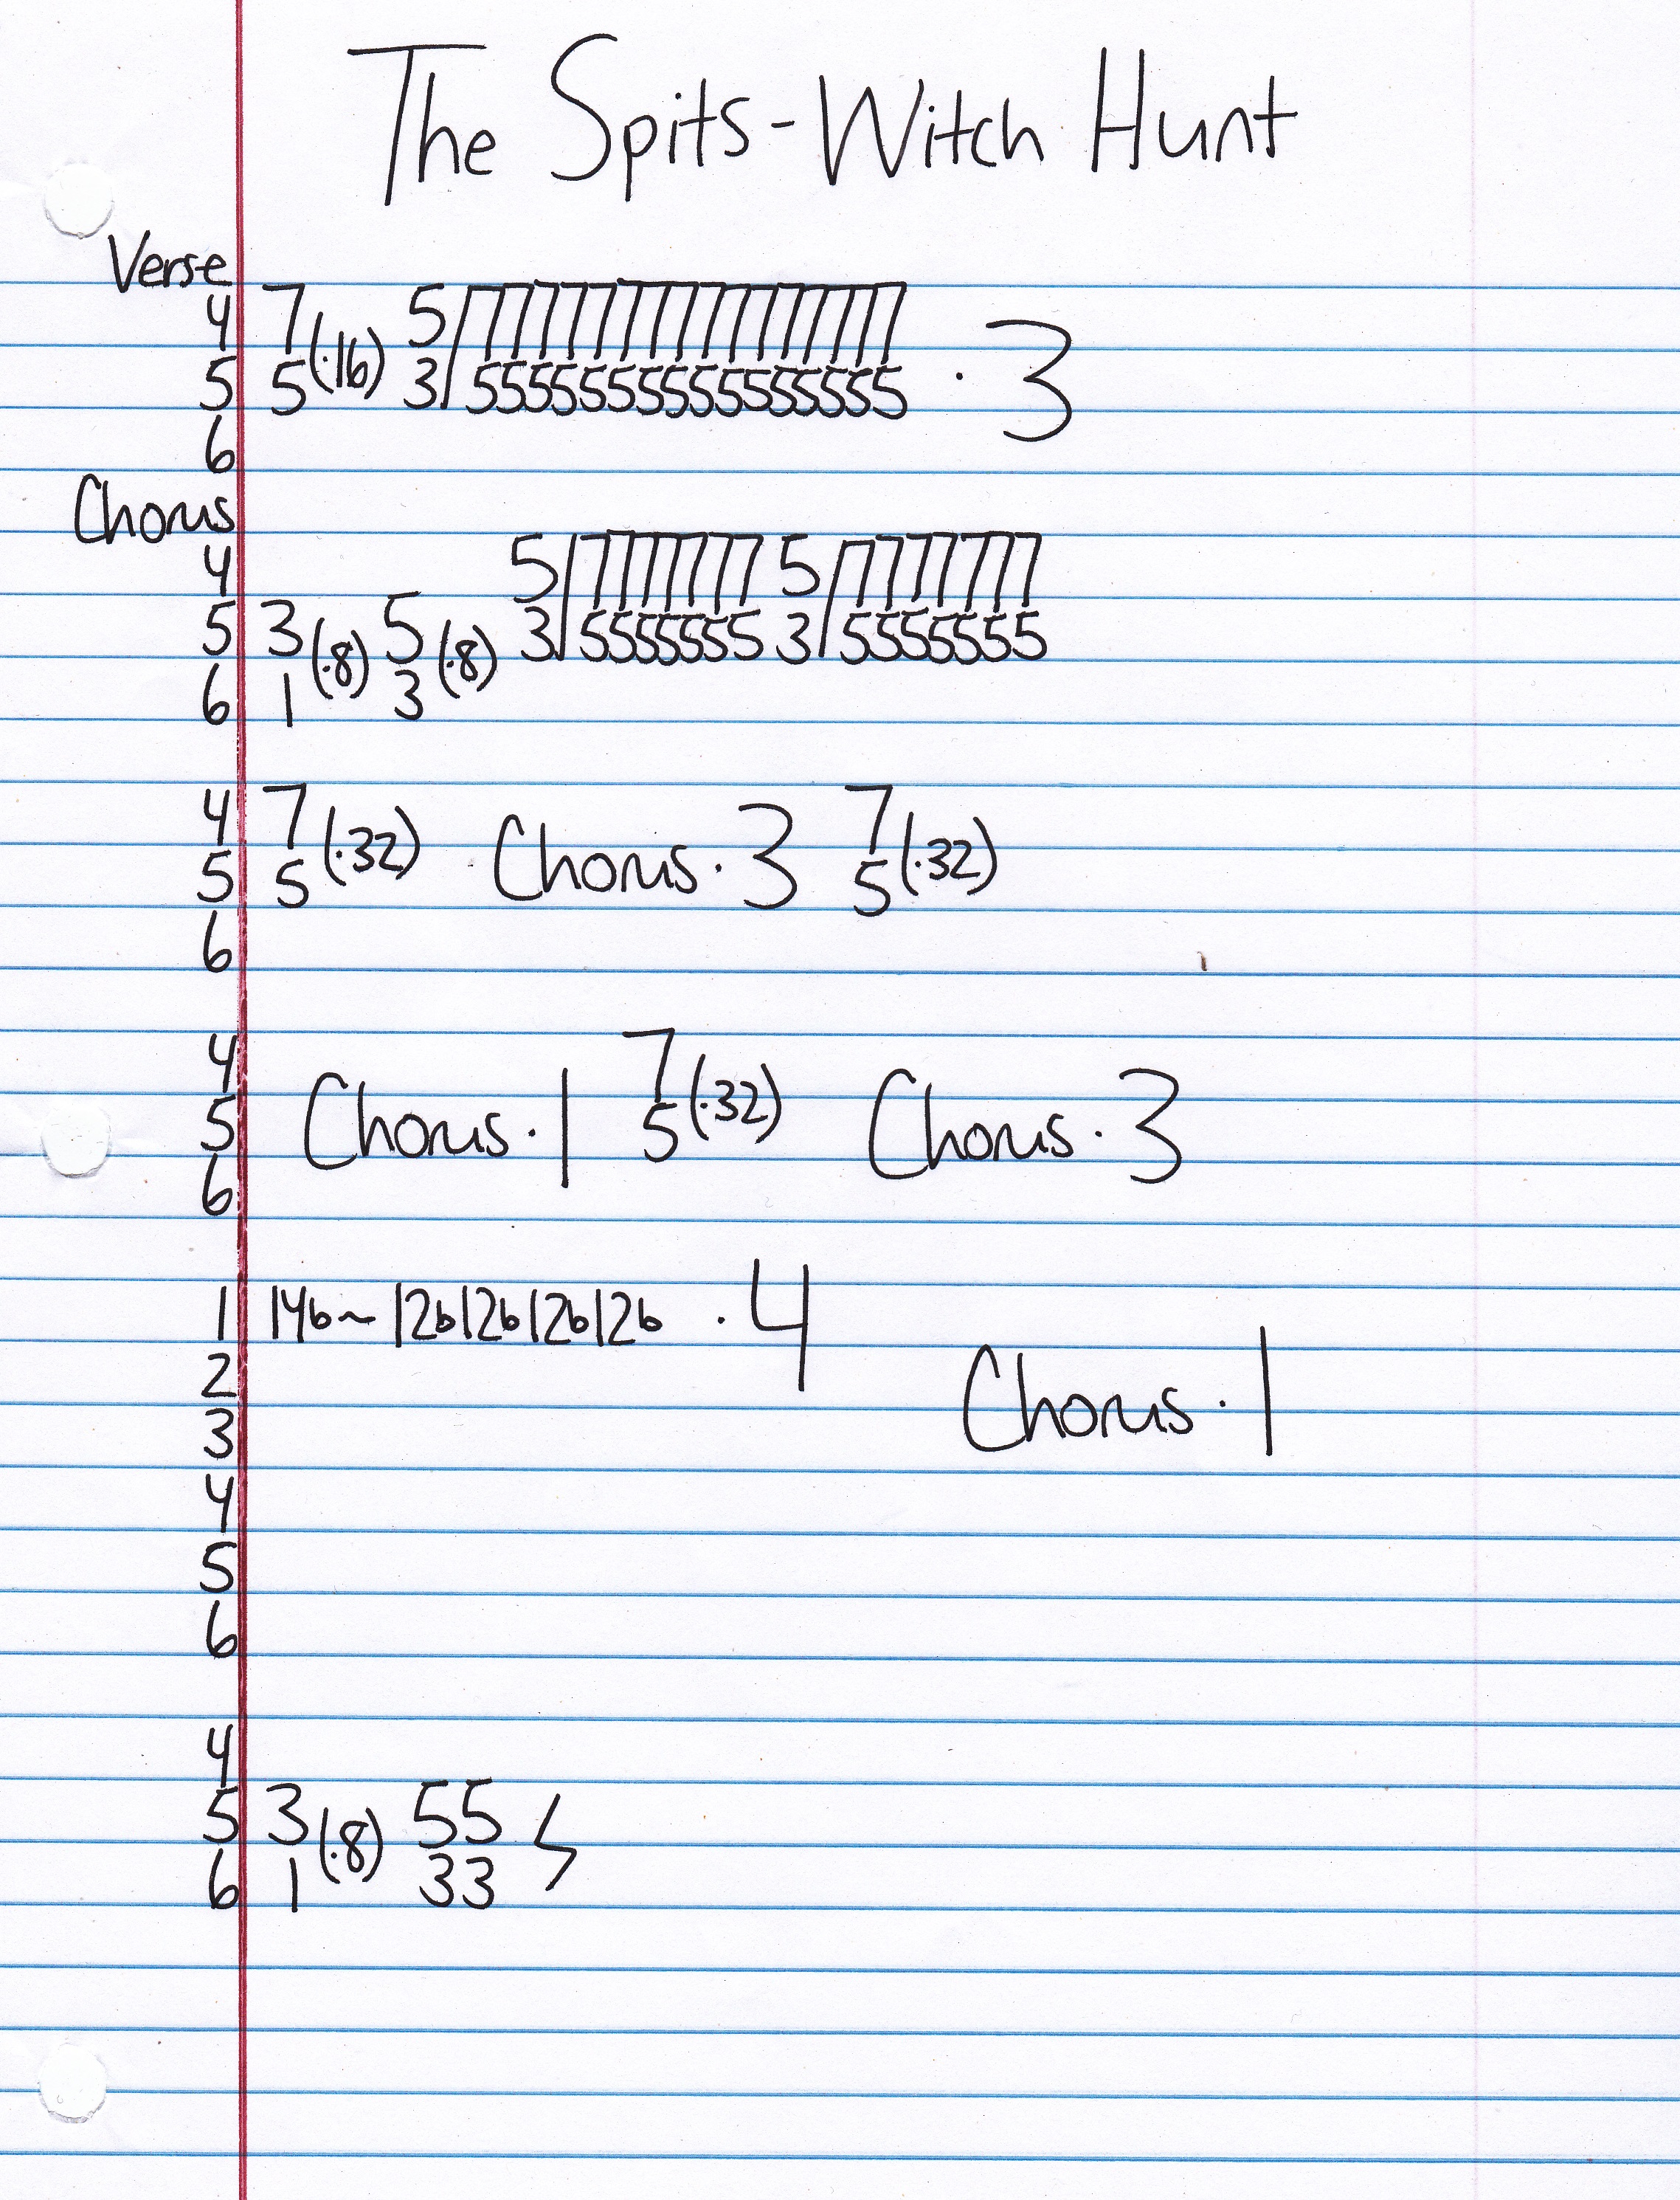 The Spits - Witch Hunt
Verse
4 7 5/777777777777777
(·16) · 3
5 5 3/555555555555555
6
Chorus
4 5/7777777 5/7777777
5 3 5 3/5555555 3/5555555
(·8) (·8)
6 1 3
4 7 7
(·32) Chorus · 3 (·32)
5 5 5
6
4 7
(·32)
5 Chorus · 1 5 Chorus · 3
6
1 14b~ 12b12b12b12b · 4
2
Chorus · 1
3
4
5
6
4
5 3 55
(·8)
6 1 33